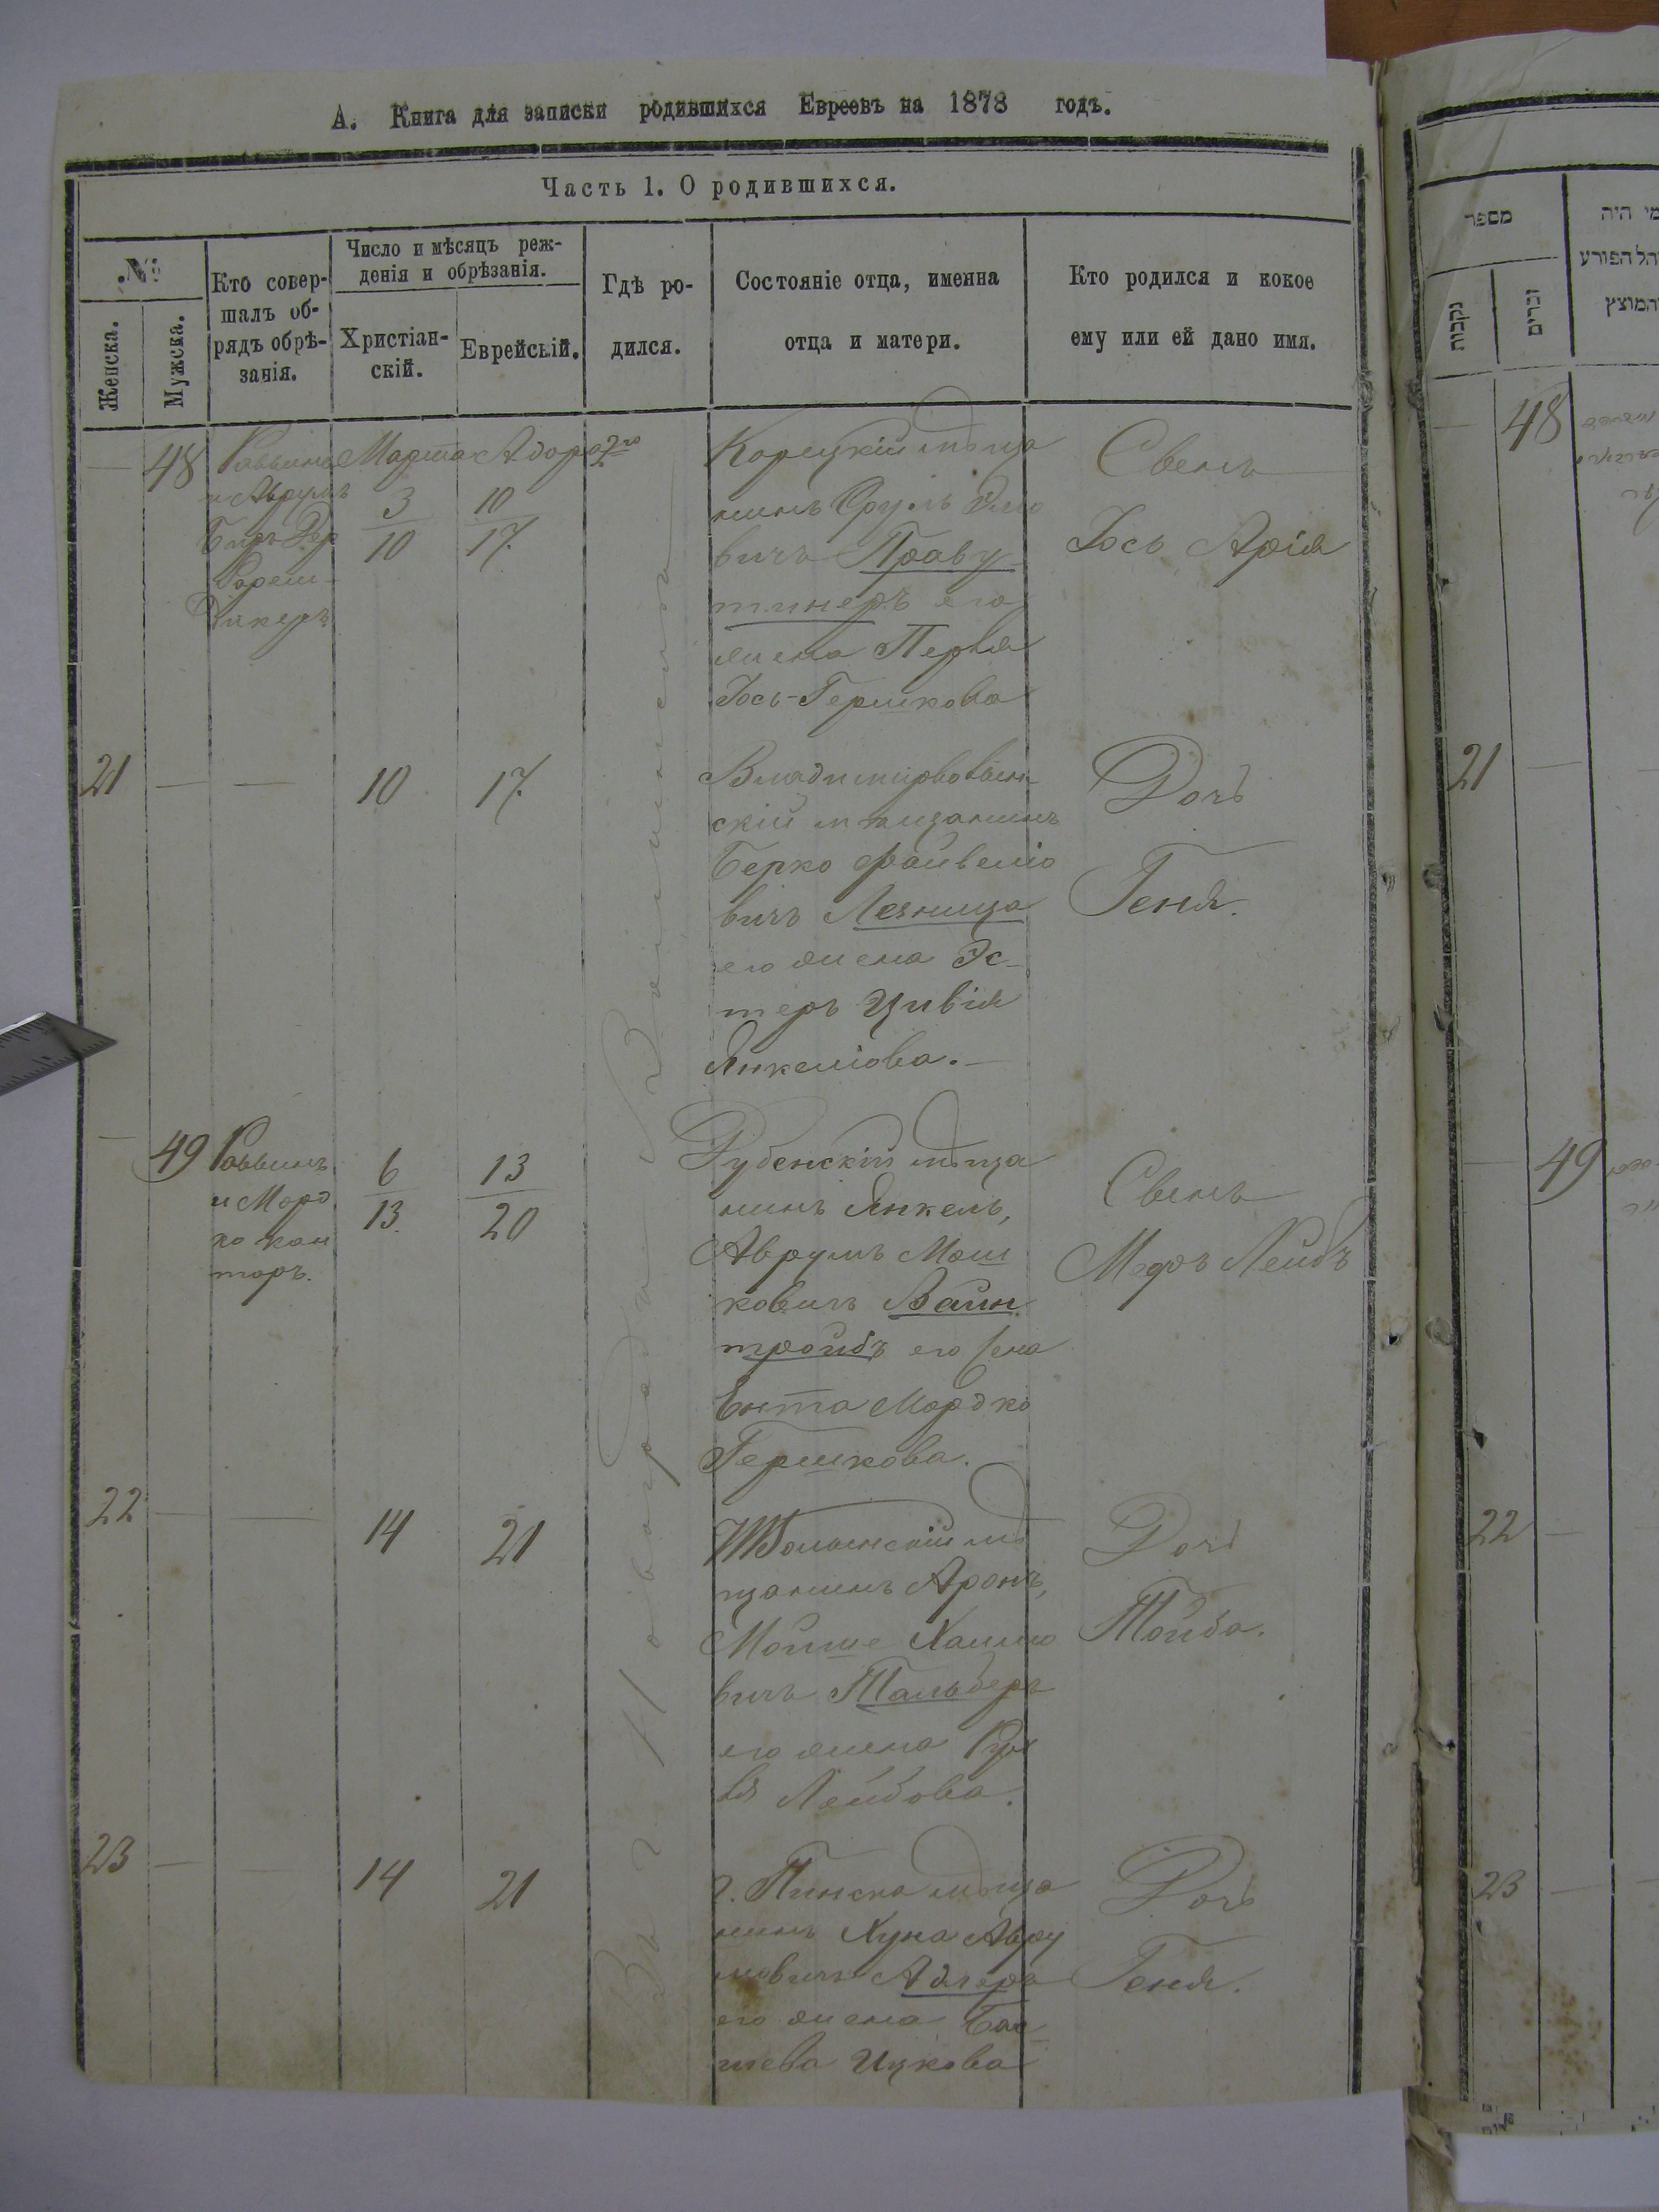 А. Книга для записки родившихся Евреевъ на 1878 годъ.
Часть 1. О родившихся.
№
Женска.
Мужска.
Кто совер-
шалъ об-
рядъ обрѣ-
занія.
Число и мѣсяцъ реж-
денія и обрѣзанія.
Христіан-
скій.
Еврейскій.
Гдѣ ро-
дился.
Состояніе отца, именна
отца и матери.
Кто родился и кокое
ему или ей дано имя.
48
Раввинъ
и Аврумъ
Беръ
Марта
3
10
Адара 2го
10
17.
Корецкій мѣща
нинъ Сруль
вичъ Праву
тинеръ его
жена Перля
Іось-Гершкова
Свенъ
Іось Арія
21
10
17.
Владимірволын
скій мѣщанинъ
Берко Файвеліо
вичъ
его жена Эс-
теръ Цивія
Янкеліова.
Дочь
Геня.
49
Раввинъ
и Морд
ко Кан
торъ.
6
13
13
20
Дубенскій мѣща
нинъ Янкель,
Аврумъ Мош
ковичъ Вайн
тройбъ его жена
Ента Мордко
Гершкова.
Свенъ
Меръ Лейбъ
22
14
21
мѣ
щанинъ Аронъ,
Мойше Хаимо
вичъ Тальберг
его жена
Лейбова.
Дочь
Тойба.
23
14
21
г. Пинска мѣща
нинъ Хуна Авру
мовичъ Адлеръ
его жена Бас
шева Ицкова
Дочь
Геня.
Въ г. Новоградъ Волынскъ
מספר
נקבות
זכרים
מי היה
המוצץ
48
21
49
22
23